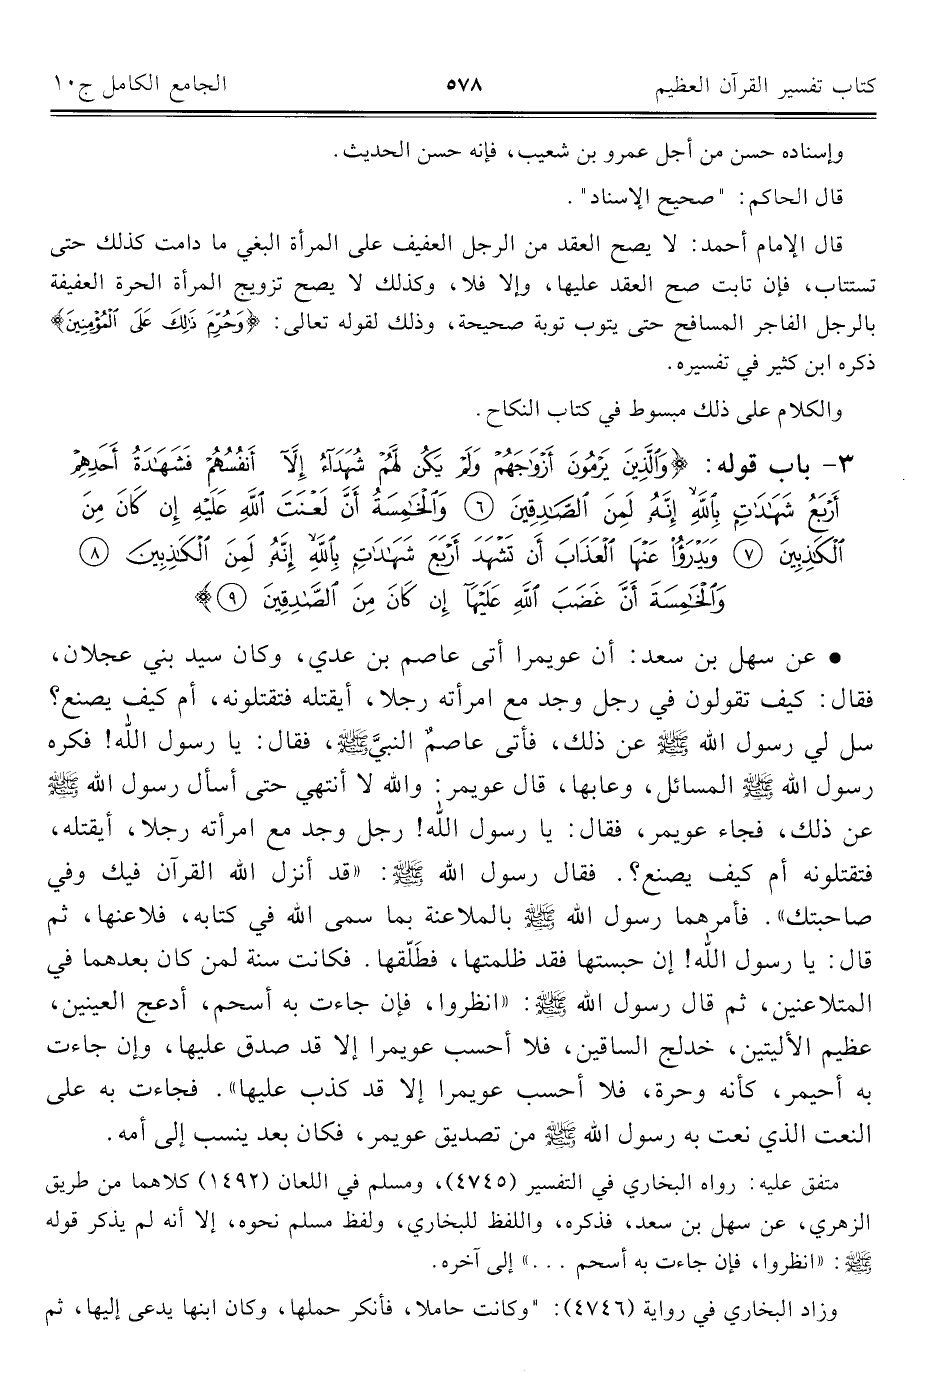 كتاب تفسير القرآن العظيم ٥٧٨ الجامع الكامل ج١٠
وإسناده حسن من أجل عمرو بن شعيب، فإنه حسن الحديث.
قال الحاكم: "صحيح الإسناد".
قال الإمام أحمد: لا يصح العقد من الرجل العفيف على المرأة البغي ما دامت كذلك حتى
تستتاب، فإن تابت صح العقد عليها، وإلا فلا، وكذلك لا يصح تزويج المرأة الحرة العفيفة
بالرجل الفاجر المسافح حتى يتوب توبة صحيحة، وذلك لقوله تعالى: ﴿وَحُرِّمَ ذَٰلِكَ عَلَى ٱلْمُؤْمِنِينَ﴾
ذكره ابن كثير في تفسيره.
والكلام على ذلك مبسوط في كتاب النكاح.
٣- باب قوله: ﴿وَٱلَّذِينَ يَرْمُونَ أَزْوَٰجَهُمْ وَلَمْ يَكُن لَّهُمْ شُهَدَآءُ إِلَّآ أَنفُسُهُمْ فَشَهَٰدَةُ أَحَدِهِمْ
أَرْبَعُ شَهَٰدَٰتٍۭ بِٱللَّهِ ۙ إِنَّهُۥ لَمِنَ ٱلصَّٰدِقِينَ ٦ وَٱلْخَٰمِسَةُ أَنَّ لَعْنَتَ ٱللَّهِ عَلَيْهِ إِن كَانَ مِنَ
ٱلْكَٰذِبِينَ ٧ وَيَدْرَؤُا۟ عَنْهَا ٱلْعَذَابَ أَن تَشْهَدَ أَرْبَعَ شَهَٰدَٰتٍۭ بِٱللَّهِ ۙ إِنَّهُۥ لَمِنَ ٱلْكَٰذِبِينَ ٨
وَٱلْخَٰمِسَةَ أَنَّ غَضَبَ ٱللَّهِ عَلَيْهَآ إِن كَانَ مِنَ ٱلصَّٰدِقِينَ ٩﴾
• عن سهل بن سعد: أن عويمرا أتى عاصم بن عدي، وكان سيد بني عجلان،
فقال: كيف تقولون في رجل وجد مع امرأته رجلا، أيقتله فتقتلونه، أم كيف يصنع؟
سل لي رسول الله ﷺ عن ذلك، فأتى عاصمٌ النبيَّ ﷺ، فقال: يا رسول الله! فكره
رسول الله ﷺ المسائل، وعابها، قال عويمر: والله لا أنتهي حتى أسأل رسول الله ﷺ
عن ذلك، فجاء عويمر، فقال: يا رسول الله! رجل وجد مع امرأته رجلا، أيقتله،
فتقتلونه أم كيف يصنع؟. فقال رسول الله ﷺ: «قد أنزل الله القرآن فيك وفي
صاحبتك». فأمرهما رسول الله ﷺ بالملاعنة بما سمى الله في كتابه، فلاعنها، ثم
قال: يا رسول الله! إن حبستها فقد ظلمتها، فطَلّقها. فكانت سنة لمن كان بعدهما في
المتلاعنين، ثم قال رسول الله ﷺ: «انظروا، فإن جاءت به أسحم، أدعج العينين،
عظيم الأليتين، خدلج الساقين، فلا أحسب عويمرا إلا قد صدق عليها، وإن جاءت
به أحيمر، كأنه وحرة، فلا أحسب عويمرا إلا قد كذب عليها». فجاءت به على
النعت الذي نعت به رسول الله ﷺ من تصديق عويمر، فكان بعد ينسب إلى أمه.
متفق عليه: رواه البخاري في التفسير (٤٧٤٥)، ومسلم في اللعان (١٤٩٢) كلاهما من طريق
الزهري، عن سهل بن سعد، فذكره، واللفظ للبخاري، ولفظ مسلم نحوه، إلا أنه لم يذكر قوله
ﷺ: «انظروا، فإن جاءت به أسحم ...» إلى آخره.
وزاد البخاري في رواية (٤٧٤٦): "وكانت حاملا، فأنكر حملها، وكان ابنها يدعى إليها، ثم